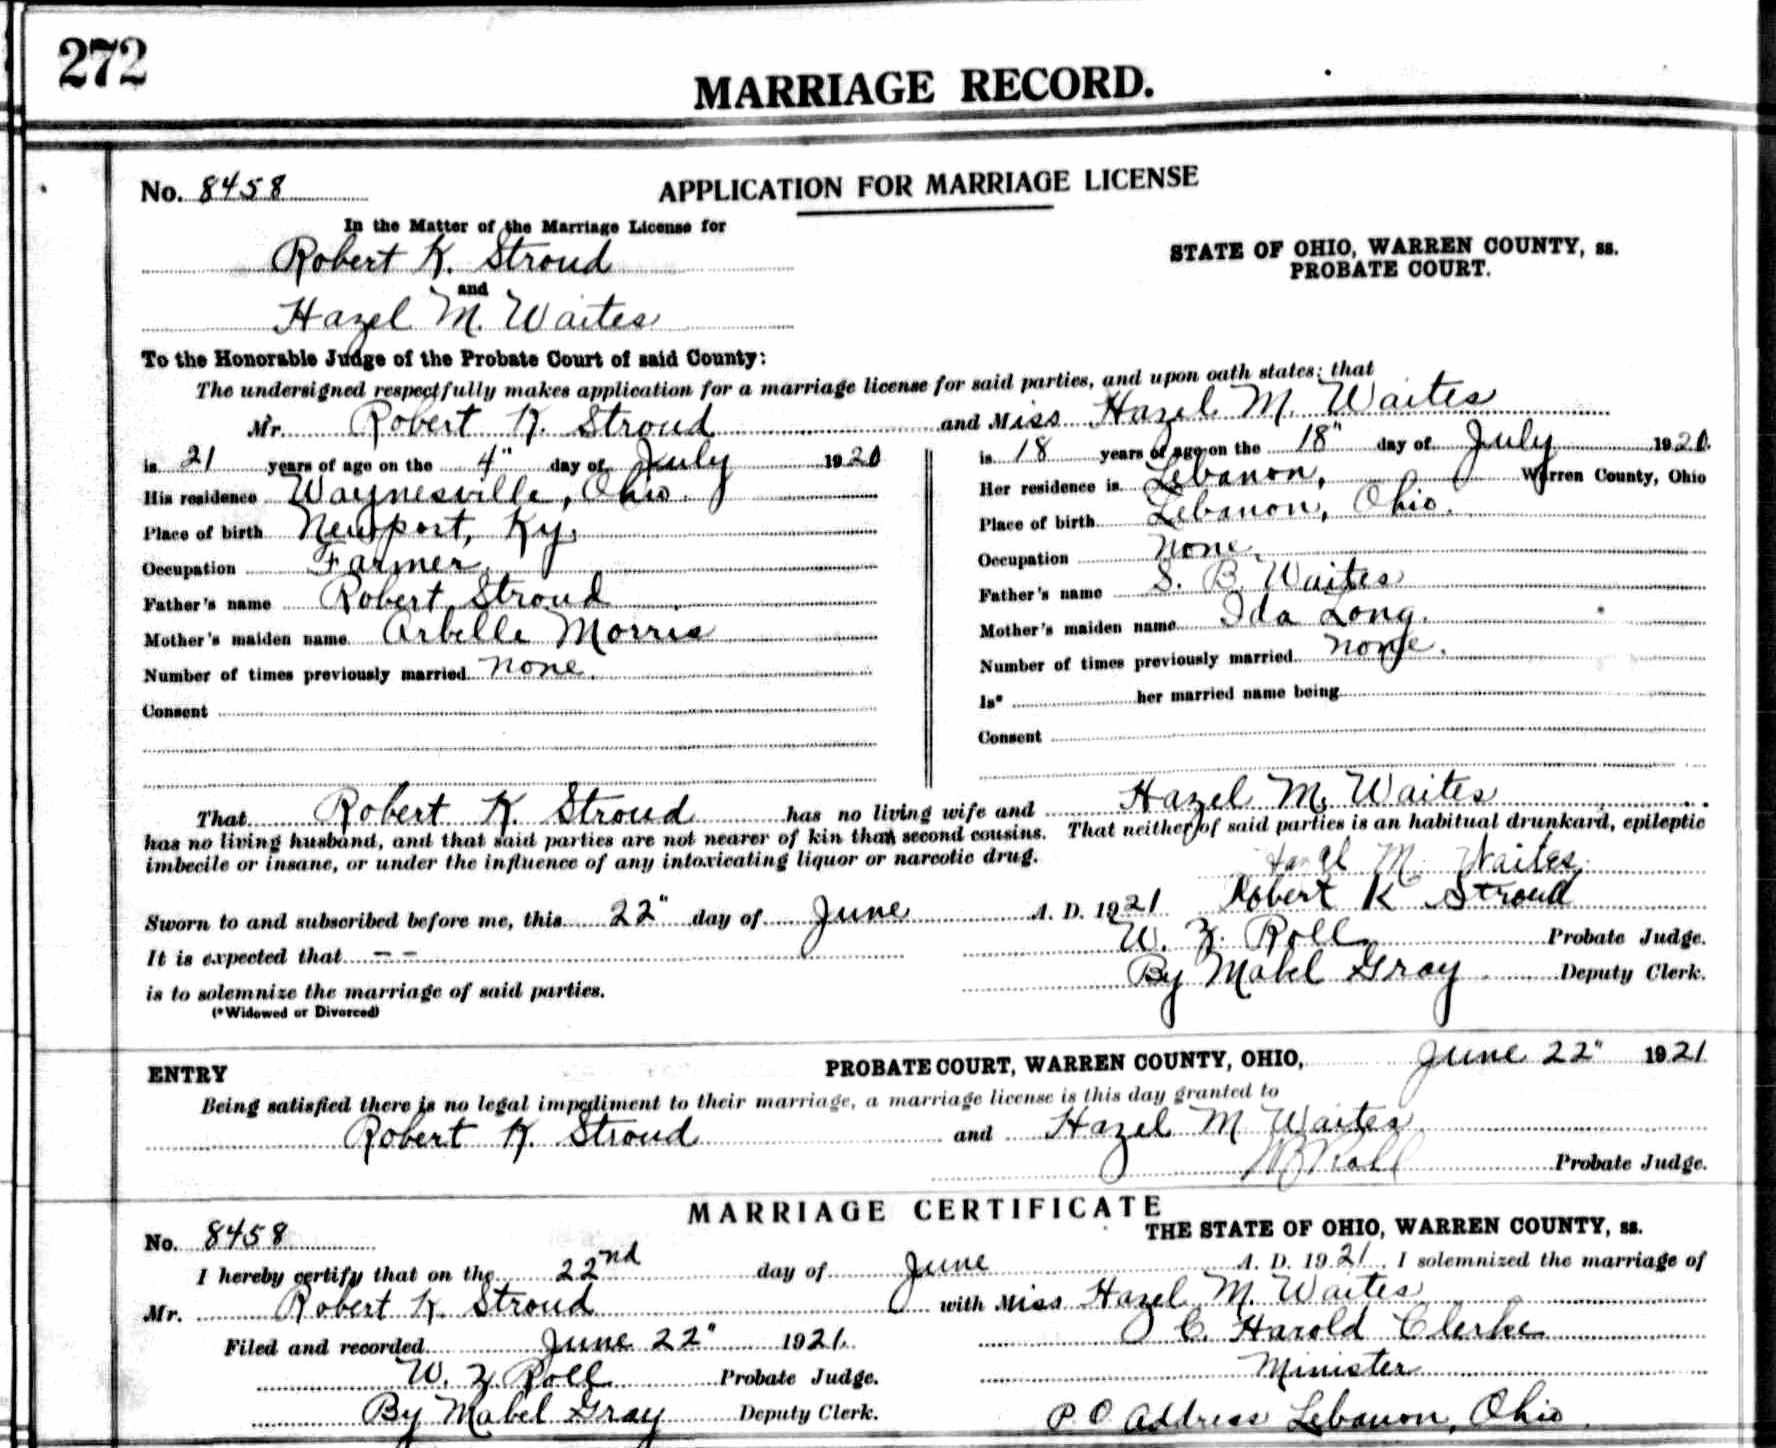 272
MARRIAGE RECORD.
No. 8458
APPLICATION FOR MARRIAGE LICENSE
In the Matter of the Marriage License for
Robert K. Stroud
and
Hazel M. Waites
STATE OF OHIO, WARREN COUNTY, ss.
PROBATE COURT.
To the Honorable Judge of the Probate Court of said County:
The undersigned respectfully makes application for a marriage license for said parties, and upon oath states: that
Mr. Robert K. Stroud and Miss Hazel M. Waites
is 21 years of age on the 4" day of July 1920
His residence Waynesville, Ohio.
Place of birth Newport, Ky.
Occupation Farmer.
Father's name Robert Stroud
Mother's maiden name Arbelle Morris
Number of times previously married none.
Consent
is 18 years of age on the 18" day of July 1920.
Her residence is Lebanon, Warren County, Ohio
Place of birth Lebanon, Ohio.
Occupation none.
Father's name S. B. Waites
Mother's maiden name Ida Long.
Number of times previously married none.
Is* her married name being
Consent
That Robert K. Stroud has no living wife and Hazel M. Waites
has no living husband, and that said parties are not nearer of kin than second cousins. That neither of said parties is an habitual drunkard, epileptic
imbecile or insane, or under the influence of any intoxicating liquor or narcotic drug.
Hazel M. Waites
Robert K Stroud
Sworn to and subscribed before me, this 22" day of June A. D. 1921
W. Z. Roll Probate Judge.
It is expected that --
By Mabel Gray Deputy Clerk.
is to solemnize the marriage of said parties.
(*Widowed or Divorced)
ENTRY
PROBATE COURT, WARREN COUNTY, OHIO, June 22" 1921
Being satisfied there is no legal impediment to their marriage, a marriage license is this day granted to
Robert K. Stroud and Hazel M Waites
WZ Roll Probate Judge.
MARRIAGE CERTIFICATE
No. 8458
THE STATE OF OHIO, WARREN COUNTY, ss.
I hereby certify that on the 22nd day of June A. D. 1921, I solemnized the marriage of
Mr. Robert K. Stroud with Miss Hazel M. Waites
Filed and recorded June 22" 1921.
C. Harold Clerke
W. Z. Roll Probate Judge.
Minister
By Mabel Gray Deputy Clerk.
P.O. Address Lebanon, Ohio.